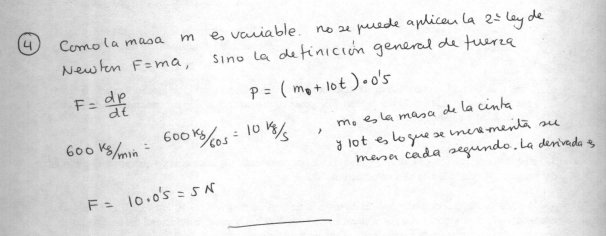 4 Como la masa m es variable. no se puede aplicar la 2ª ley de
Newton F=ma, sino la definición general de fuerza
F = dp/dt P = (m₀ + 10t)·0'5
600 Kg/min = 600 Kg/60s = 10 Kg/s , m₀ es la masa de la cinta
y 10t es lo que se incrementa su
masa cada segundo. La derivada es
F = 10·0'5 = 5 N